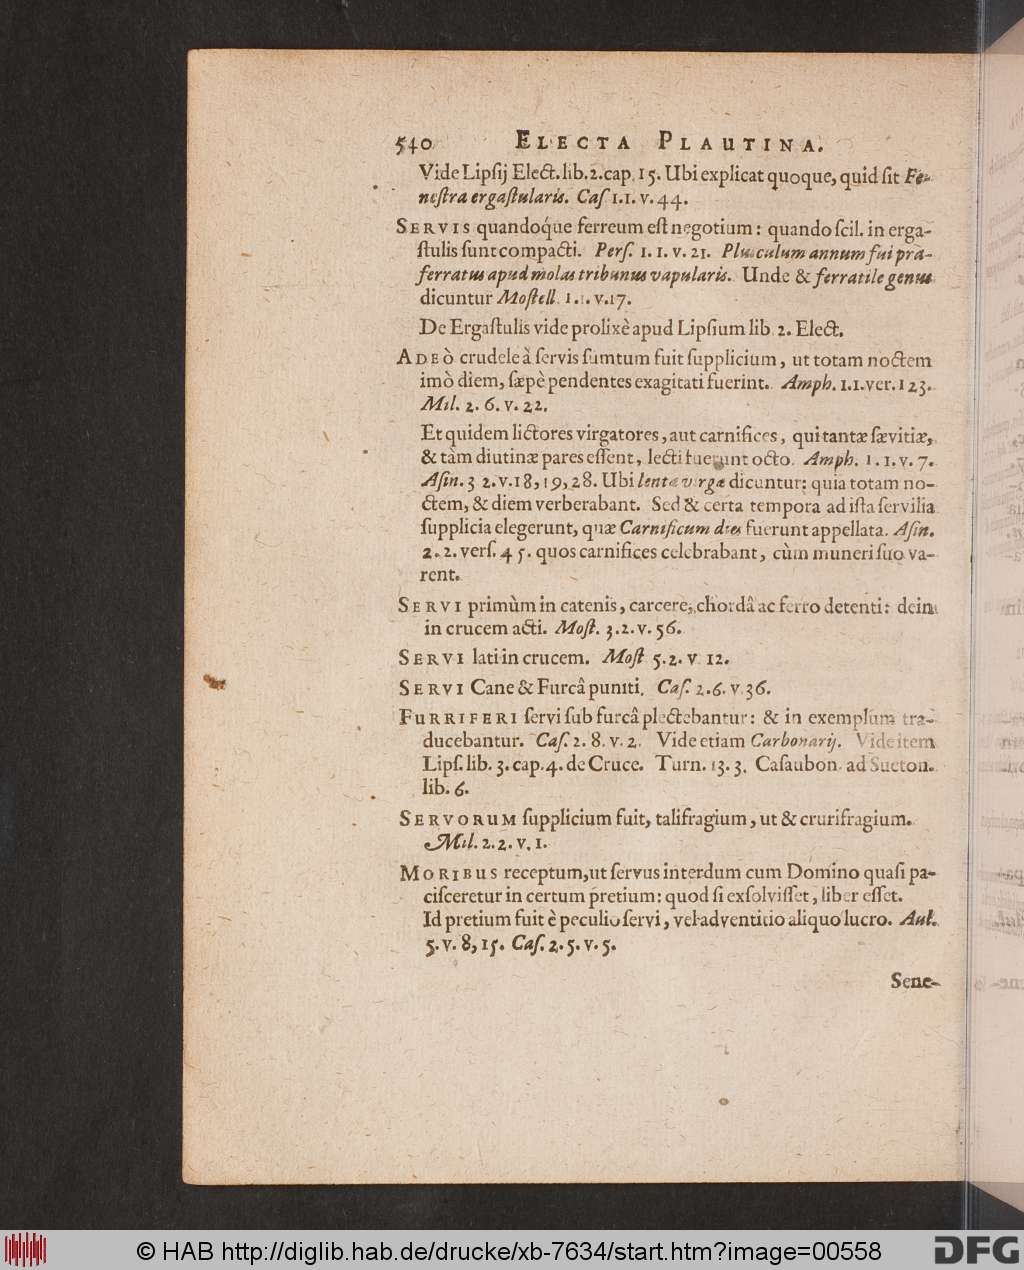 540 ELECTA PLAUTINA.
Vide Lipſij Elect. lib. 2. cap. 15. Ubi explicat quoque, quid ſit Fe-
neſtra ergaſtularis. Caſ 1.1. v. 44.
SERVIS quandoq́ue ferreum eſt negotium: quando ſcil. in erga-
ſtulis ſunt compacti. Perſ. 1. 1. v. 21. Pluſculum annum fui præ-
ferratus apud molas tribunus vapularis. Unde & ferratile genus
dicuntur Moſtell. 1.1. v.17.
De Ergaſtulis vide prolixè apud Lipſium lib. 2. Elect.
ADEÒ crudele à ſervis ſumtum fuit ſupplicium, ut totam noctem
imò diem, ſæpè pendentes exagitati fuerint. Amph. 1.1.ver. 123.
Mil. 2. 6. v. 22.
Et quidem lictores virgatores, aut carnifices, qui tantæ ſævitiæ,
& tàm diutinæ pares eſſent, lecti fuerunt octo. Amph. 1. 1. v. 7.
Aſin. 3 2. v.18, 19, 28. Ubi lentæ virgæ dicuntur: quia totam no-
ctem, & diem verberabant. Sed & certa tempora ad iſta ſervilia
ſupplicia elegerunt, quæ Carnificum dies fuerunt appellata. Aſin.
2. 2. verſ. 45. quos carnifices celebrabant, cùm muneri ſuo va-
rent.
SERVI primùm in catenis, carcere, chordâ ac ferro detenti: dein
in crucem acti. Moſt. 3.2. v. 56.
SERVI lati in crucem. Moſt 5.2. v. 12.
SERVI Cane & Furcâ puniti. Caſ. 2.6. v.36.
FURRIFERI ſervi ſub furcâ plectebantur: & in exemplum tra-
ducebantur. Caſ. 2. 8. v. 2. Vide etiam Carbonarij. Vide item
Lipſ. lib. 3. cap. 4. de Cruce. Turn. 13. 3. Caſaubon. ad Sueton.
lib. 6.
SERVORUM ſupplicium fuit, talifragium, ut & crurifragium.
Mil. 2. 2. v. 1.
MORIBUS receptum, ut ſervus interdum cum Domino quaſi pa-
ciſceretur in certum pretium: quod ſi exſolviſſet, liber eſſet.
Id pretium fuit è peculio ſervi, vel adventitio aliquo lucro. Aul.
5. v. 8, 15. Caſ. 2. 5. v. 5.
Sene-
© HAB http://diglib.hab.de/drucke/xb-7634/start.htm?image=00558
DFG